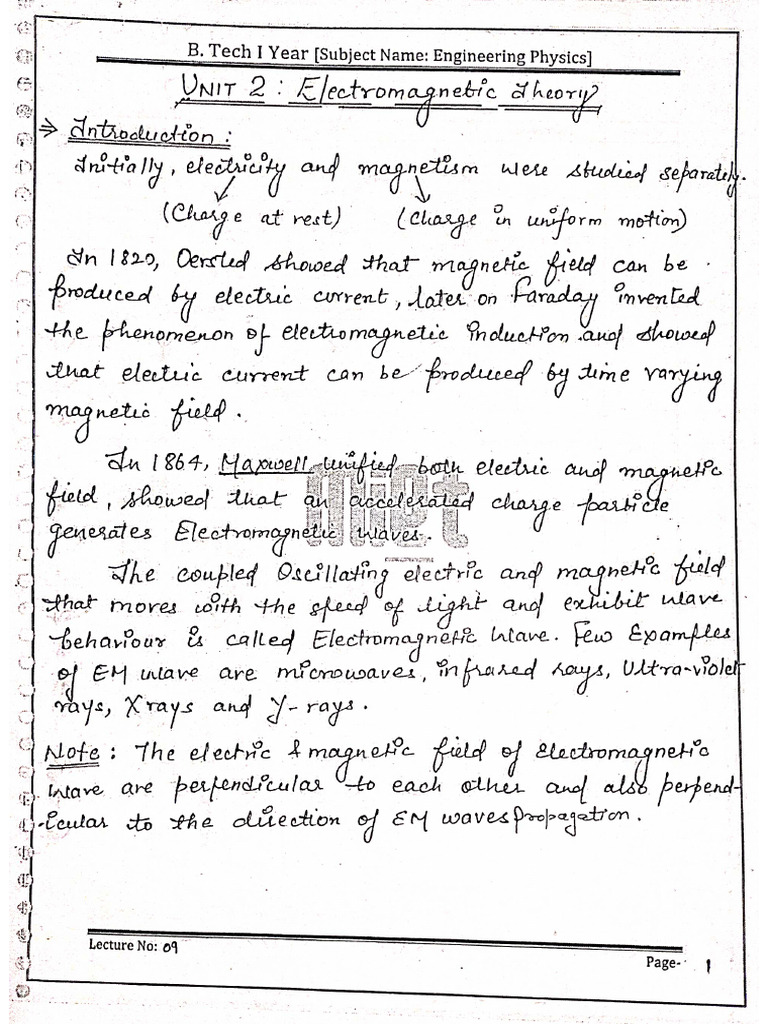 B. Tech I Year [Subject Name: Engineering Physics]
UNIT 2 : Electromagnetic Theory
⇒ Introduction :
Initially, electricity and magnetism were studied separately.
(Charge at rest) (Charge in uniform motion)
In 1820, Oersted showed that magnetic field can be
produced by electric current, later on Faraday invented
the phenomenon of electromagnetic induction and showed
that electric current can be produced by time varying
magnetic field.
In 1864, Maxwell unified both electric and magnetic
field, showed that an accelerated charge particle
generates Electromagnetic waves.
miet
The coupled Oscillating electric and magnetic field
that moves with the speed of light and exhibit wave
behaviour is called Electromagnetic wave. Few Examples
of EM wave are microwaves, infrared rays, Ultra-violet
rays, X rays and γ-rays.
Note : The electric & magnetic field of electromagnetic
wave are perpendicular to each other and also perpend-
-icular to the direction of EM waves propagation.
Lecture No: 09
Page- 1